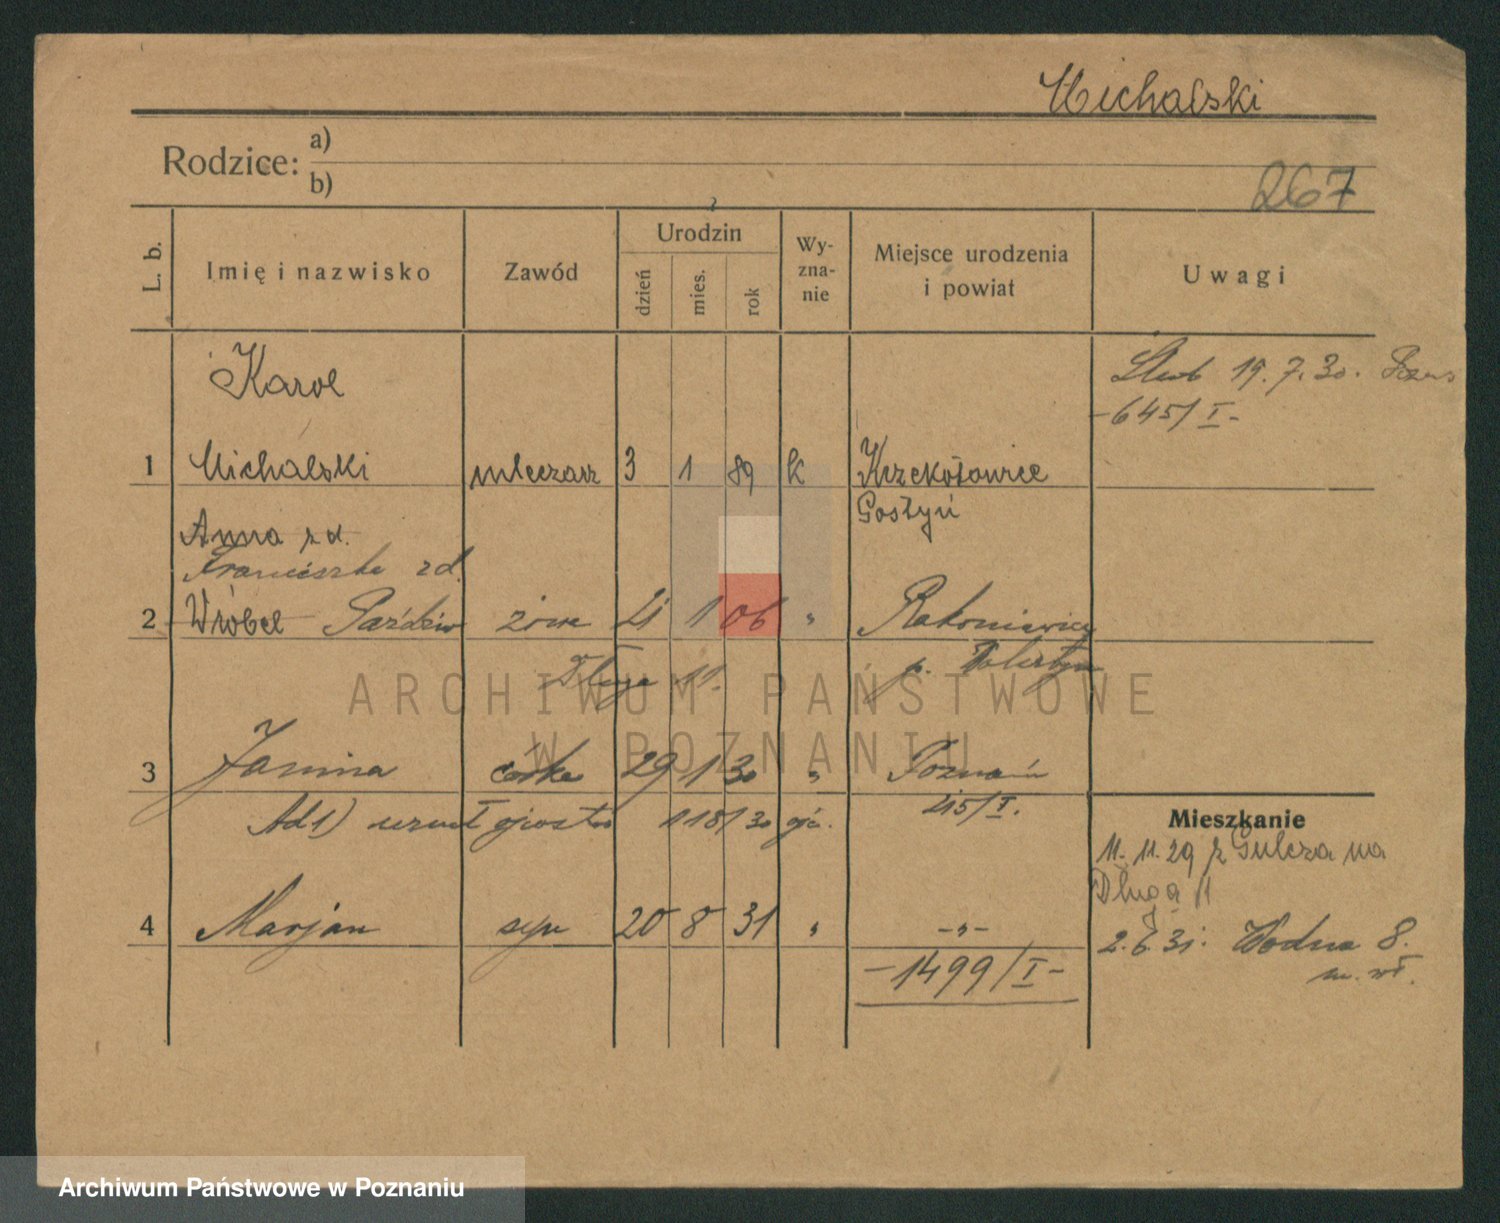 Michalski
Rodzice: a)
b)
267
L. b. Imię i nazwisko Zawód Urodzin dzień mies. rok Wy-zna-nie Miejsce urodzenia i powiat Uwagi
Karol
Ślub 19. 7. 30.
-645/I-
1 Michalski mleczarz 3 1 89 k Krzekotowice
Gostyń
Anna z d.
Franciszka z d.
2 Wróbel żona 1 06 " Rakoniewice
p. Wolsztyn
Długa 11.
3 Janina córka 29 1 30 " Poznań
Ad 1)
Mieszkanie
11. 11. 29 z Gulcza na
Długa 11
4 Marjan syn 20 8 31 " -"-
2. 6. 31. Wodna 8.
-1499/I-
ARCHIWUM PAŃSTWOWE
W POZNANIU
Archiwum Państwowe w Poznaniu